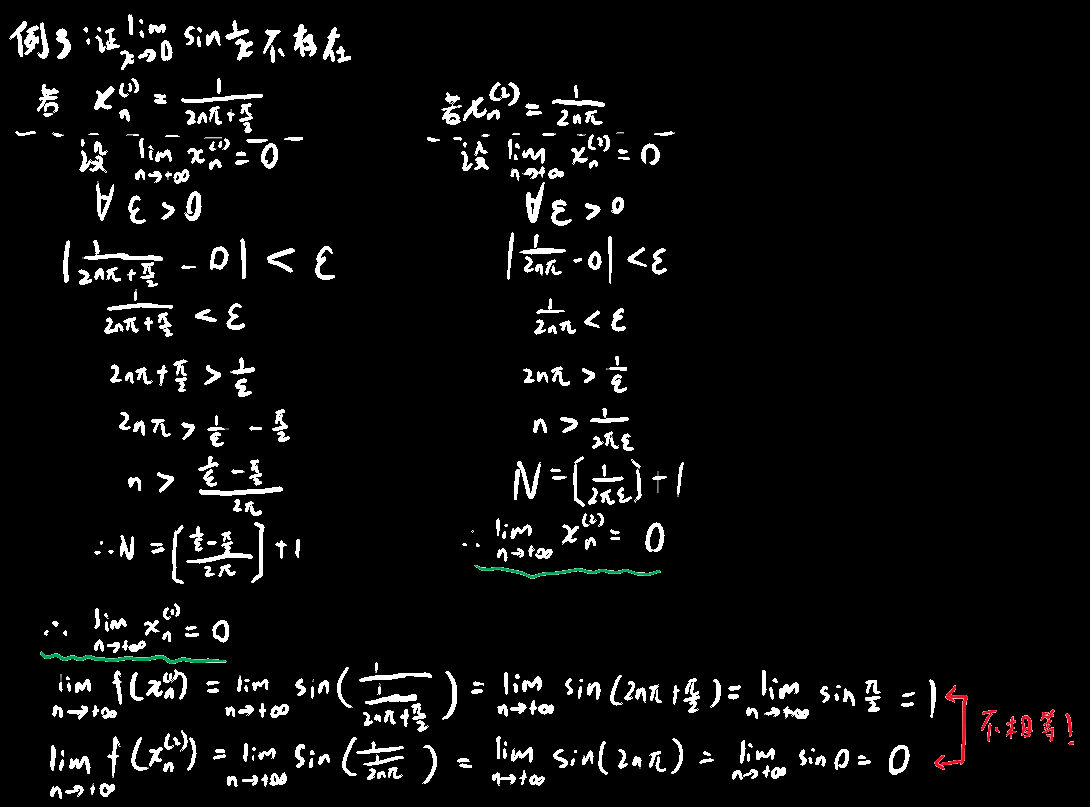 例3:证 lim_{x→0} sin 1/x 不存在
若 x_n^{(1)} = 1/(2nπ+π/2)
设 lim_{n→+∞} x_n^{(1)} = 0
∀ ε > 0
|1/(2nπ+π/2) - 0| < ε
1/(2nπ+π/2) < ε
2nπ+π/2 > 1/ε
2nπ > 1/ε - π/2
n > (1/ε - π/2)/(2π)
∴ N = [(1/ε - π/2)/(2π)] + 1
∴ lim_{n→+∞} x_n^{(1)} = 0
若 x_n^{(2)} = 1/(2nπ)
设 lim_{n→+∞} x_n^{(2)} = 0
∀ ε > 0
|1/(2nπ) - 0| < ε
1/(2nπ) < ε
2nπ > 1/ε
n > 1/(2πε)
N = [1/(2πε)] + 1
∴ lim_{n→+∞} x_n^{(2)} = 0
lim_{n→+∞} f(x_n^{(1)}) = lim_{n→+∞} sin(1/(1/(2nπ+π/2))) = lim_{n→+∞} sin(2nπ+π/2) = lim_{n→+∞} sin π/2 = 1
lim_{n→+∞} f(x_n^{(2)}) = lim_{n→+∞} sin(1/(2nπ)) = lim_{n→+∞} sin(2nπ) = lim_{n→+∞} sin 0 = 0
不相等!